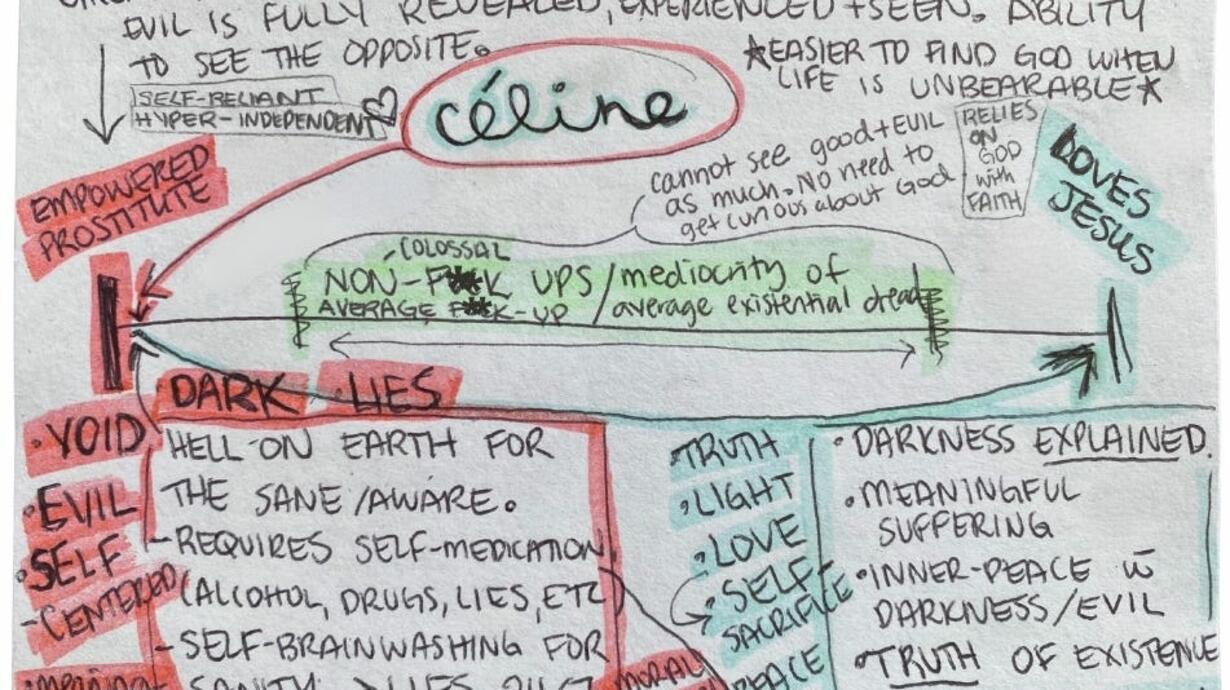 EVIL IS FULLY REVEALED, EXPERIENCED + SEEN. ABILITY
TO SEE THE OPPOSITE.
SELF-RELIANT
HYPER-INDEPENDENT
céline
*EASIER TO FIND GOD WHEN
LIFE IS UNBEARABLE*
EMPOWERED
PROSTITUTE
cannot see good + EVIL
as much. NO need to
get curious about God
RELIES
ON
GOD
with
FAITH
LOVES
JESUS
COLOSSAL
NON-F**K UPS / mediocrity of
AVERAGE F**K-UP / average existential dread
DARK LIES
• VOID
• EVIL
• SELF
-CENTERED
HELL-ON EARTH FOR
THE SANE/AWARE.
- REQUIRES SELF-MEDICATION
(ALCOHOL, DRUGS, LIES, ETC)
- SELF-BRAINWASHING FOR
SANITY LIES 24/7
MORAL
• TRUTH
• LIGHT
• LOVE
• SELF-
SACRIFICE
PEACE
• DARKNESS EXPLAINED.
• MEANINGFUL
SUFFERING
• INNER-PEACE w̄
DARKNESS/EVIL
• TRUTH OF EXISTENCE